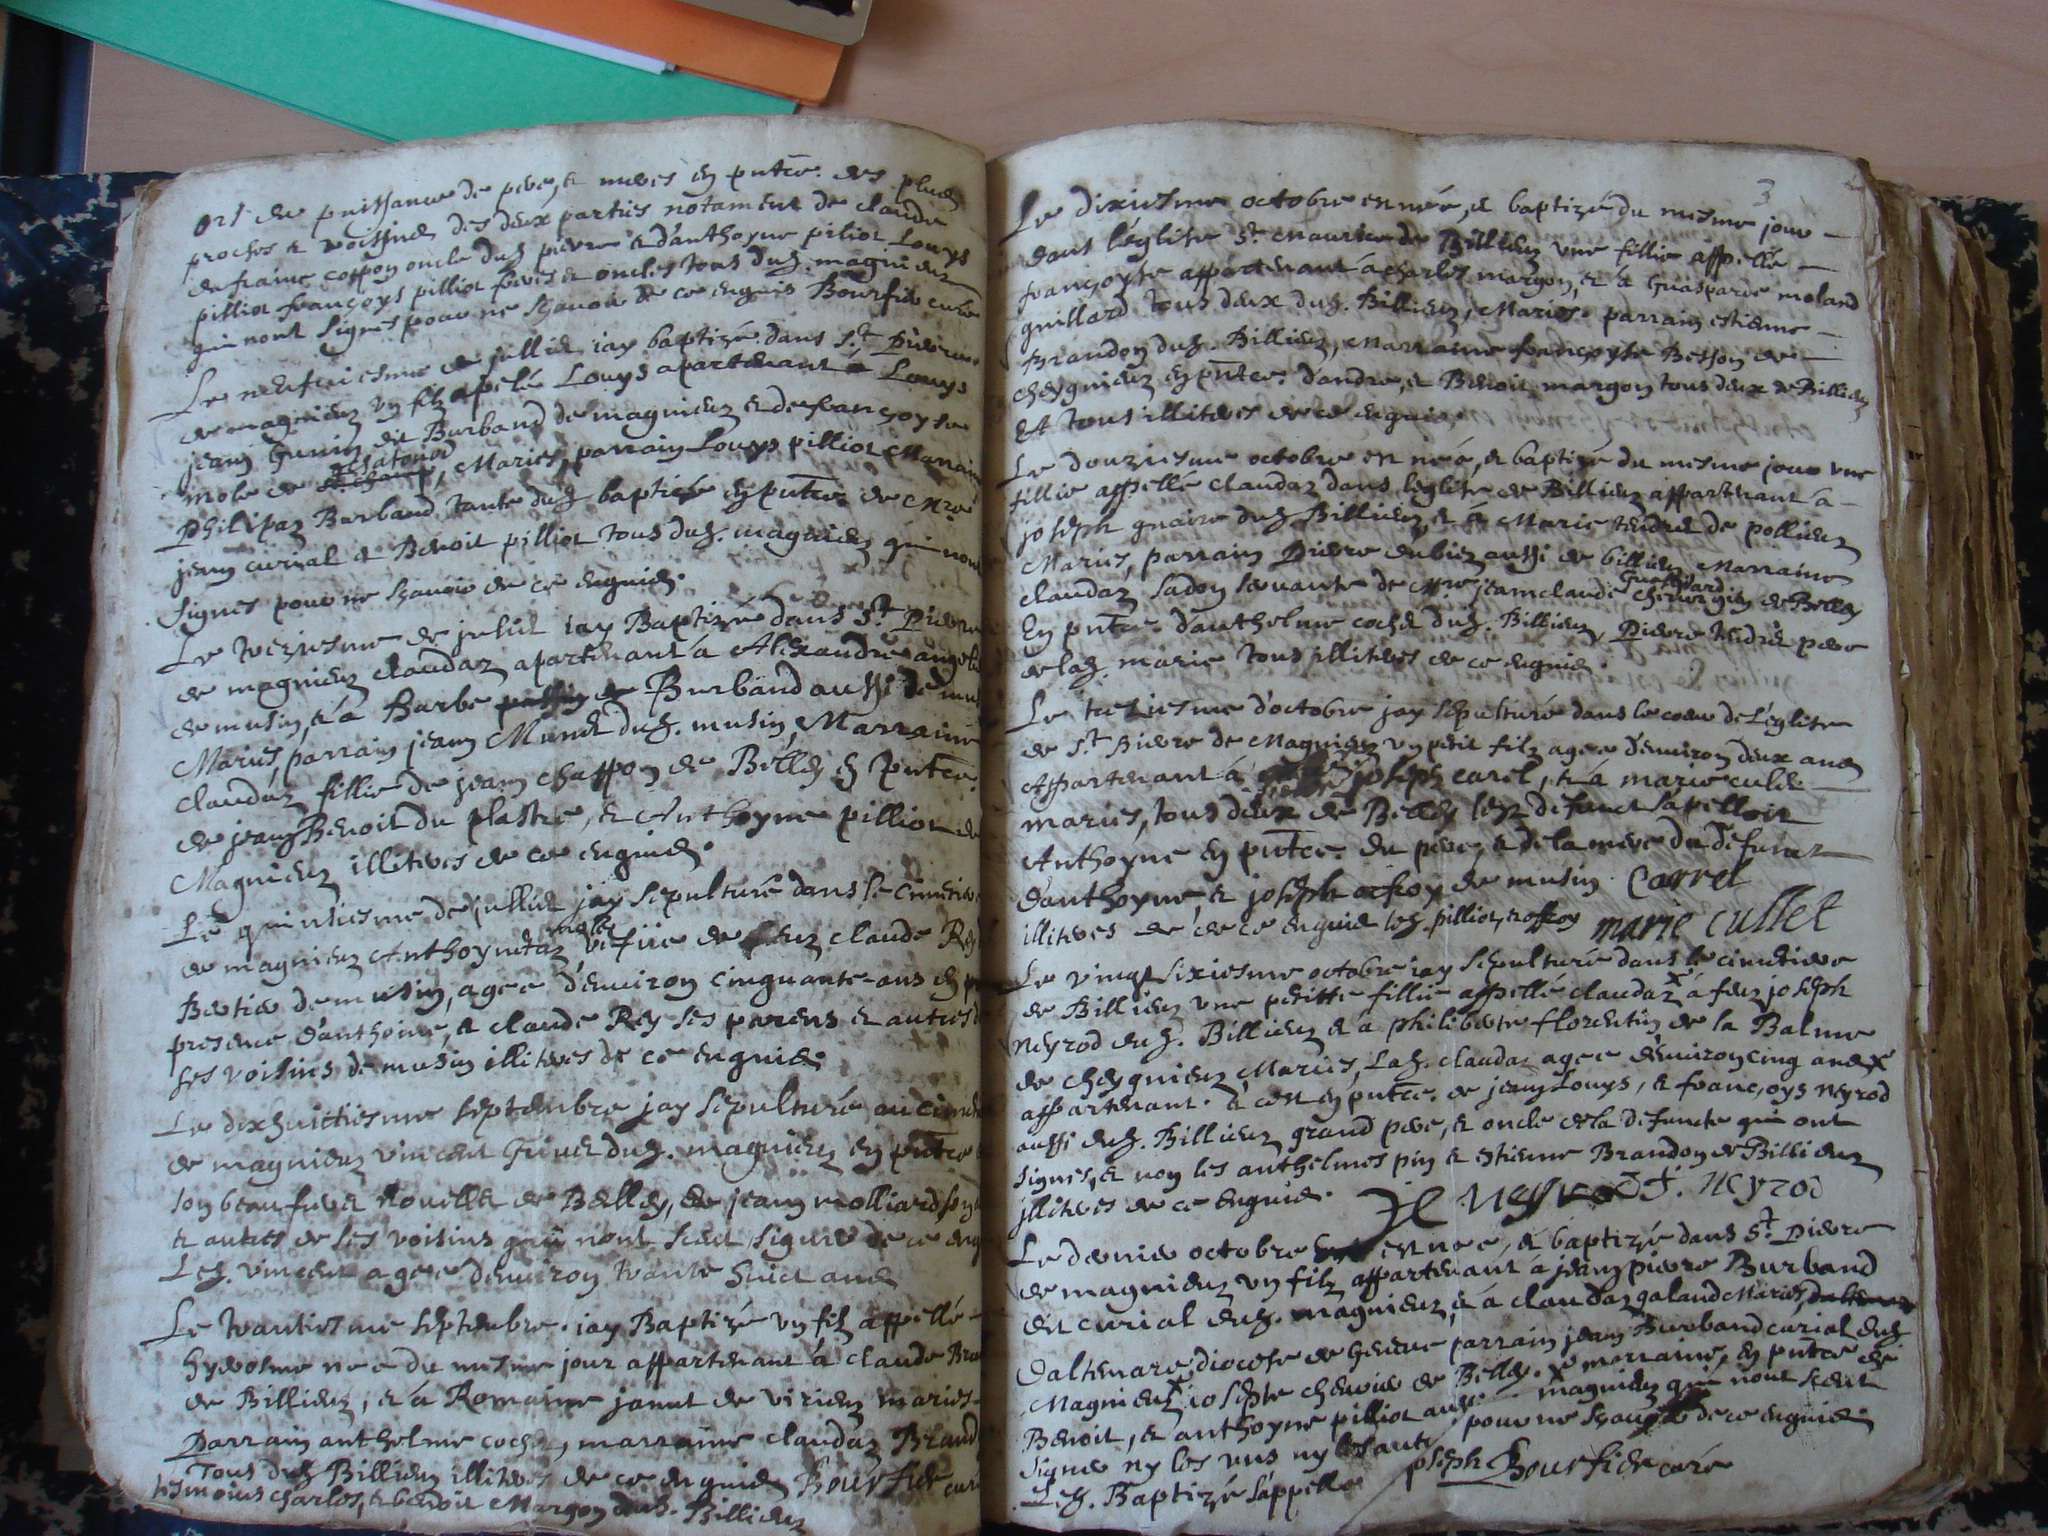 de puissance de pere, et meres en pntce. des plus
proches et voisins des deux parties notament de claude
de france coppon oncle dud pierre et d'anthoyne pilliot Louys
pilliot françoys pilliot freres et oncles tous dud. magnieu
qui nont signés pour ne sçavoir de ce enquis Bourfier curé
Le neufviesme de jullied iay baptizé dans S.t Pierre
de magnieu un filz apelé Louys apartenant a Louys
jean dit Burband de magnieu et de françoyse
mole de Mariés, parrain Louys pilliot Marraine
Philipaz Burband tante dud baptizé en pntce. de Mre
jean curial et Benoit pilliot tous dud. magnieu qui nont
signés pour ne sçavoir de ce enquis.
Le treziesme de juliet iay Baptizé dans S.t Pierre
de magnieu claudaz apartenant a Alexandre
de musin, et a Barbe Burband aussi de mus
Mariés, parrain jean Munet dud. musin, Marraine
claudaz fillie de jean chappon de Belley en pntce.
de jean Benoit du plastre, et Anthoyne pilliot de
Magnieu illiteres de ce enquis.
Le quinsiesme de jullied jay sepulturé dans le cimetiere
de magnieu Anthoynetaz molle vefve de feuz claude Rey
Bertier de musin, agee d'environ cinquante ans en p
presence d'anthoine, et claude Rey ses parens et autres
ses voisins de musin illiteres de ce enquis.
Le dixhuictiesme septembre jay sepulturé au cimet
de magnieu vincent Grivet dud. magnieu en pntce
son beaufrere Rouellet de Belley, de jean molliard son
et autres de ses voisins qui nont sceu signer de ce enq
Led. vincent agee d'environ trante huict ans
Le trantiesme septembre. iay Baptizé un filz appellé
hyerosme née du mesme jour appartenant a claude Bran
de Billieu, et a Romaine janet de virieu mariés
Parrain anthelme cochet, marraine claudaz Brand
Tous dud Billieu illiteres de ce enquis Bourfier curé
tesmoins charles, et benoit Margon dud. Billieu
3
Le dixiesme octobre est née, et baptizé du mesme jour
dans l'eglise S.t maurice de Billieu une fillie appellé
françoyse appartenant a charles margon, et a Guasparde moland
guillard tous deux dud. Billieu, Mariés. parrain estienne
Brandon dud. Billieu, marraine françoyse Besson de
cheygnieu en pntce. d'andre, et Benoit margon tous deux de Billieu
et tous illiteres de ce enquis.
Le douziesme octobre est née, et baptizé du mesme jour une
fillie appellé claudaz dans l'eglise de Billieu appartenant a
joseph guaire dud Billieu, et a Marie tendret de pollieu
Mariés, parrain Pierre dubiez aussi de billieu, Marraine
claudaz sadon servante de Mre jeanclaude de Belley
En pntce. d'anthelme cochet dud. Billieu, Pierre tendret pere
de lad. marie tous illiteres de ce enquis.
Le treziesme d'octobre jay sepulturé dans le coeur de L'eglise
de S.t Pierre de Magnieu un petit filz agee d'environ deux ans
Appartenant a joseph carel, et a marie culet
mariés, tous deux de Belley led defunct s'apelloit
Anthoyne en pntce. du pere, et de la mere du defunct
d'anthoyne, et joseph de musin. Carrel
illiteres de ce enquis led. pilliot, et marie cullet
Le vingt sixiesme octobre iay sepulturé dans le cimetiere
de Billieu une petitte fillie appellé claudaz x a feuz joseph
Neyrod dud. Billieu et a philiberte florentin de la Balme
de cheygnieu, Mariés, Lad. claudaz agee d'environ cinq ans x
appartenant. et cest en pntce. de jean Louys, et françoys Neyrod
aussi dud. Billieu grand pere, et oncle de la defuncte qui ont
signés, et non les anthelmes pin et estienne Brandon de Billieu
jlliteres de ce enquis. Neyrod f. Neyrod
Le dernier octobre est nee, et baptizé dans S.t Pierre
de magnieu un filz appartenant a jean pierre Burband
dit curial dud. magnieu, et a claudaz galand Mariés
Daltemare, diocese de Geneve parrain jean Burband curial dud
Magnieu, iosephte chervin de Belley. x marraine, en pntce de
Benoit, et anthoyne pilliot aussi magnieu qui nont sceut
signer ny les uns ny les autres pour ne sçavoir de ce enquis.
Led. Baptizé s'appelle joseph Bourfier curé